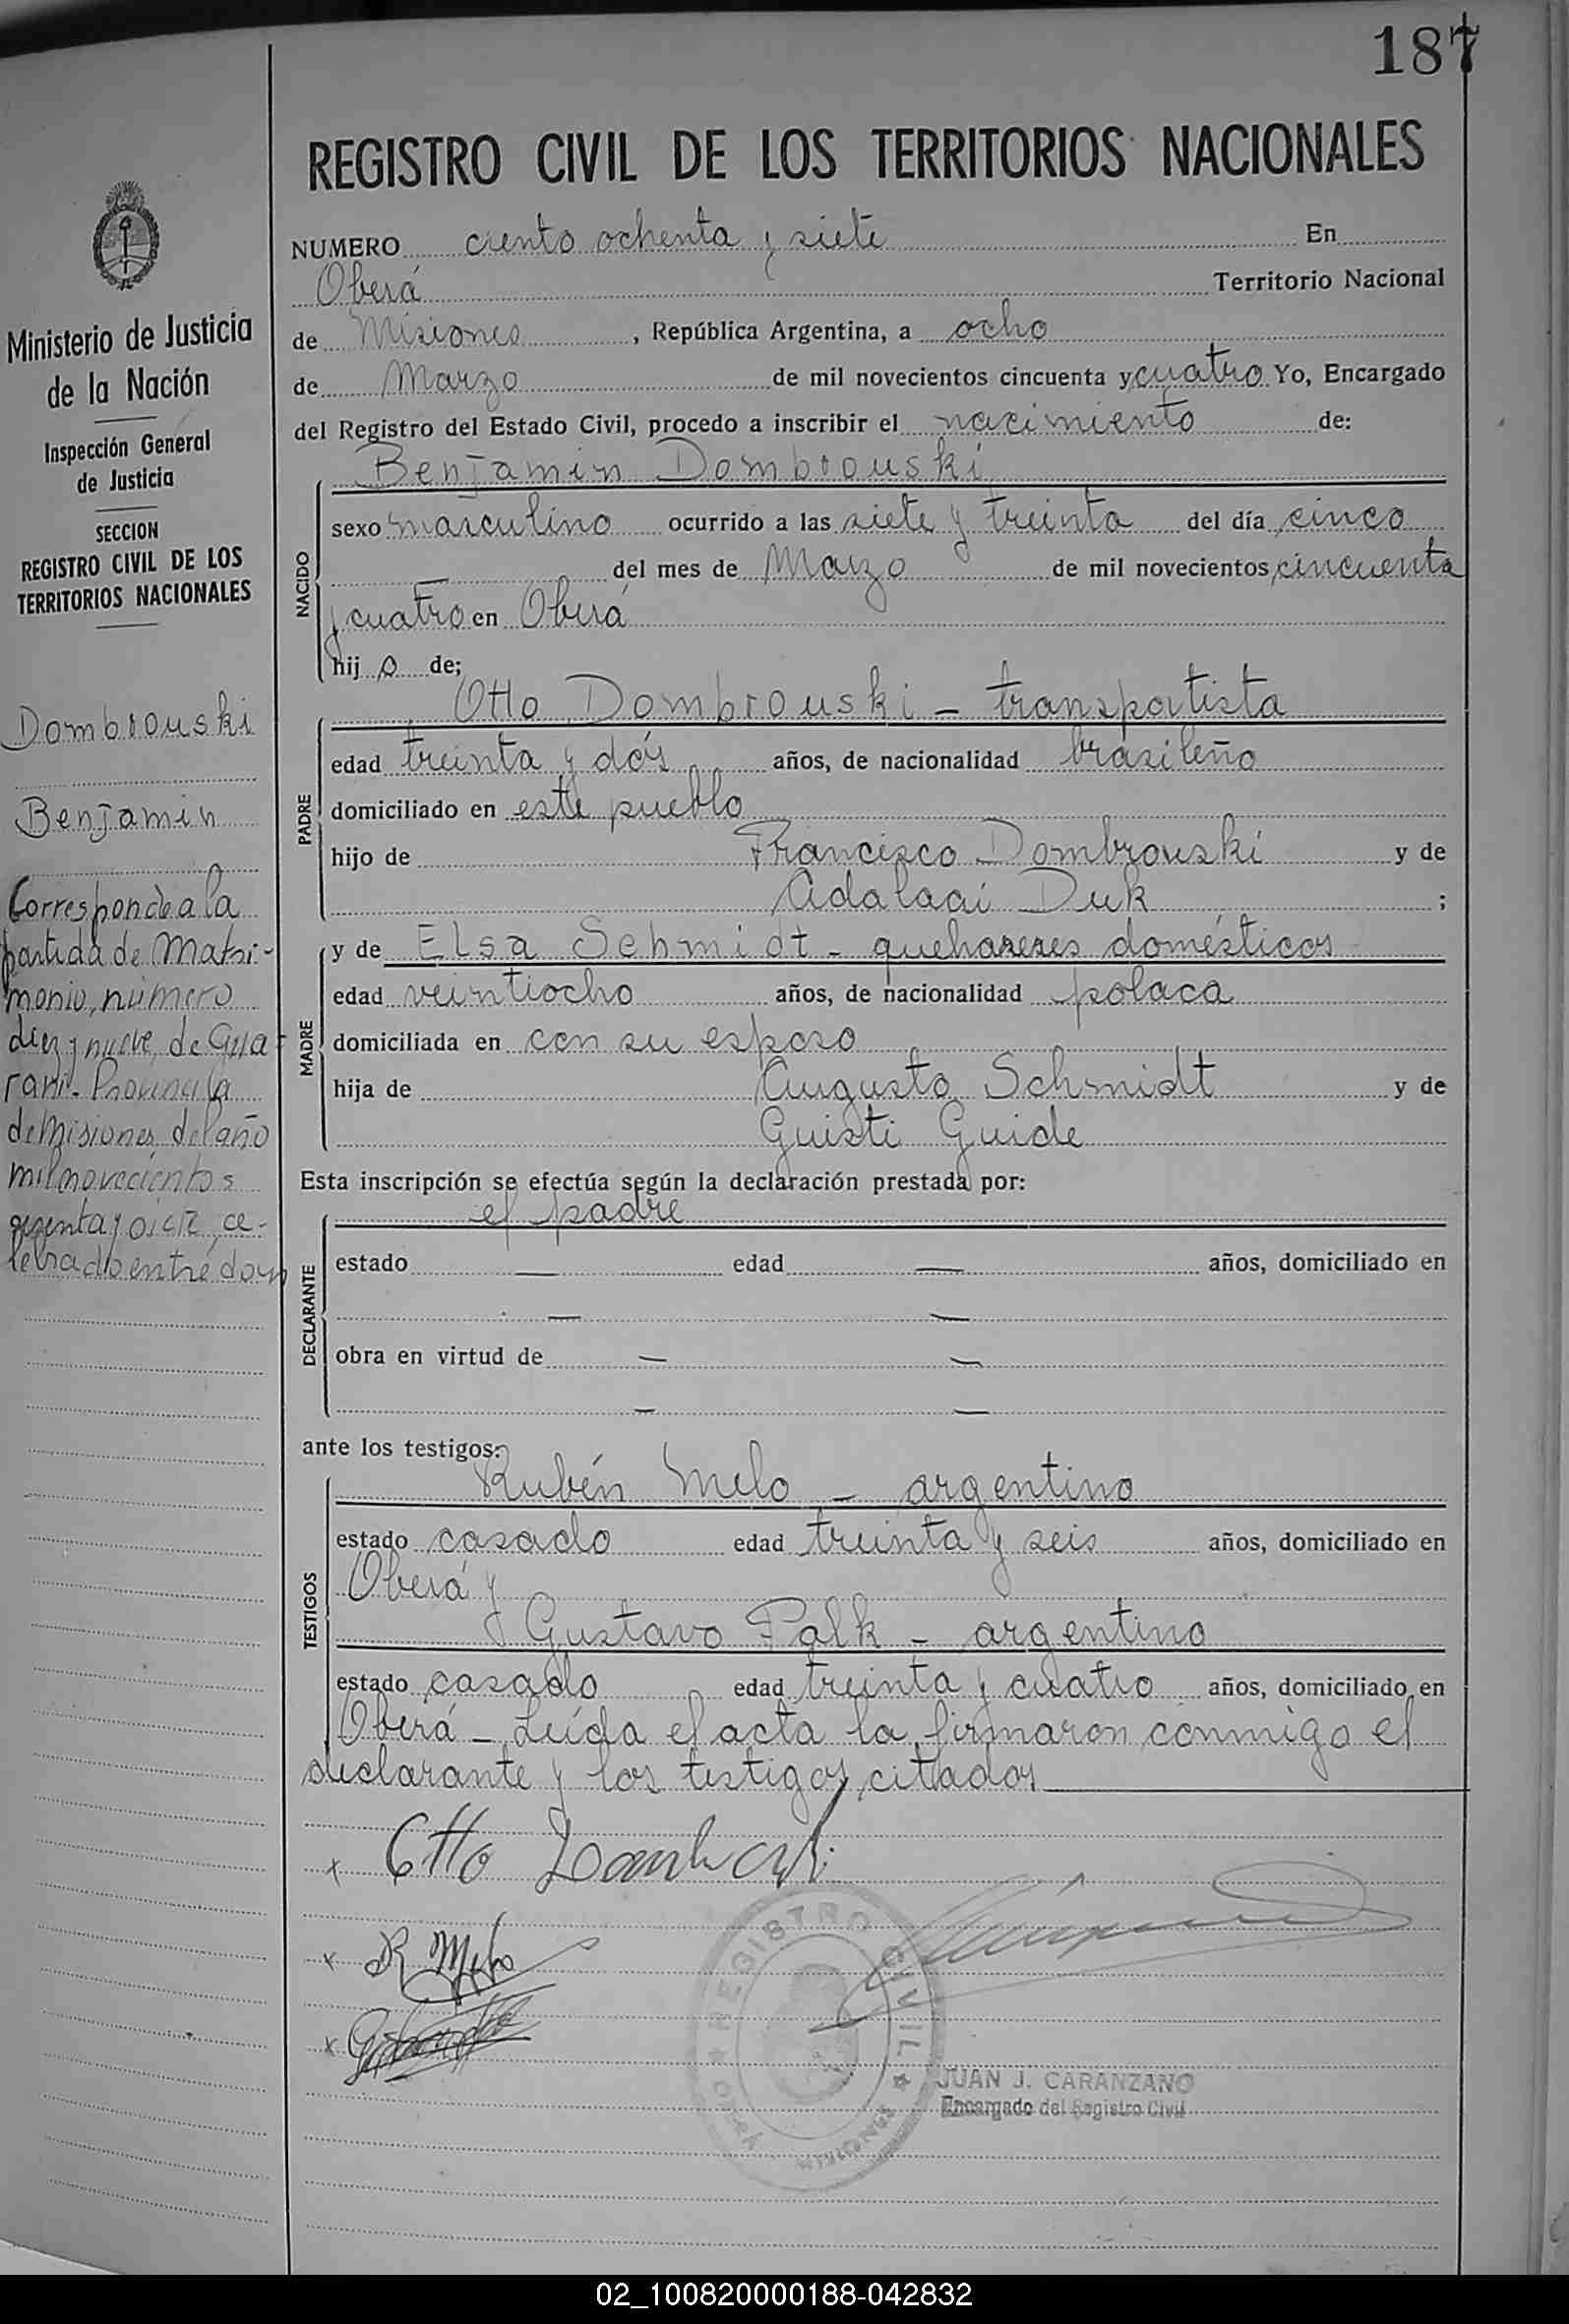 187
REGISTRO CIVIL DE LOS TERRITORIOS NACIONALES
NUMERO ciento ochenta y siete En
Oberá Territorio Nacional
de Misiones, República Argentina, a ocho
de Marzo de mil novecientos cincuenta y cuatro Yo, Encargado
del Registro del Estado Civil, procedo a inscribir el nacimiento de:
Benjamin Dombrouski
NACIDO
sexo masculino ocurrido a las siete y treinta del día cinco
del mes de Marzo de mil novecientos cincuenta
y cuatro en Oberá
hijo de;
Otto Dombrouski - transportista
PADRE
edad treinta y dós años, de nacionalidad brasileño
domiciliado en este pueblo
hijo de Francisco Dombrouski y de
Adalaai Duk ;
MADRE
y de Elsa Schmidt - quehaseres domésticos
edad veintiocho años, de nacionalidad polaca
domiciliada en con su esposo
hija de Augusto Schmidt y de
Guisti Guide
Esta inscripción se efectúa según la declaración prestada por:
el padre
DECLARANTE
estado — edad — años, domiciliado en
— —
obra en virtud de — —
— —
ante los testigos:
Rubén Melo - argentino
TESTIGOS
estado casado edad treinta y seis años, domiciliado en
Oberá y
Gustavo Falk - argentino
estado casado edad treinta y cuatro años, domiciliado en
Oberá - Leída el acta la firmaron conmigo el
declarante y los testigos citados
x Otto Dombrouski
x R Melo
x
REGISTRO CIVIL
OBERA
MISIONES
JUAN J. CARANZANO
Encargado del Registro Civil
Ministerio de Justicia
de la Nación
Inspección General
de Justicia
SECCION
REGISTRO CIVIL DE LOS
TERRITORIOS NACIONALES
Dombrouski
Benjamin
Corresponde a la
partida de Matri-
monio, número
diez y nueve de Gua
raní - Provincia
de Misiones, del año
mil novecientos
ce-
lebrado entre don
02_100820000188-042832